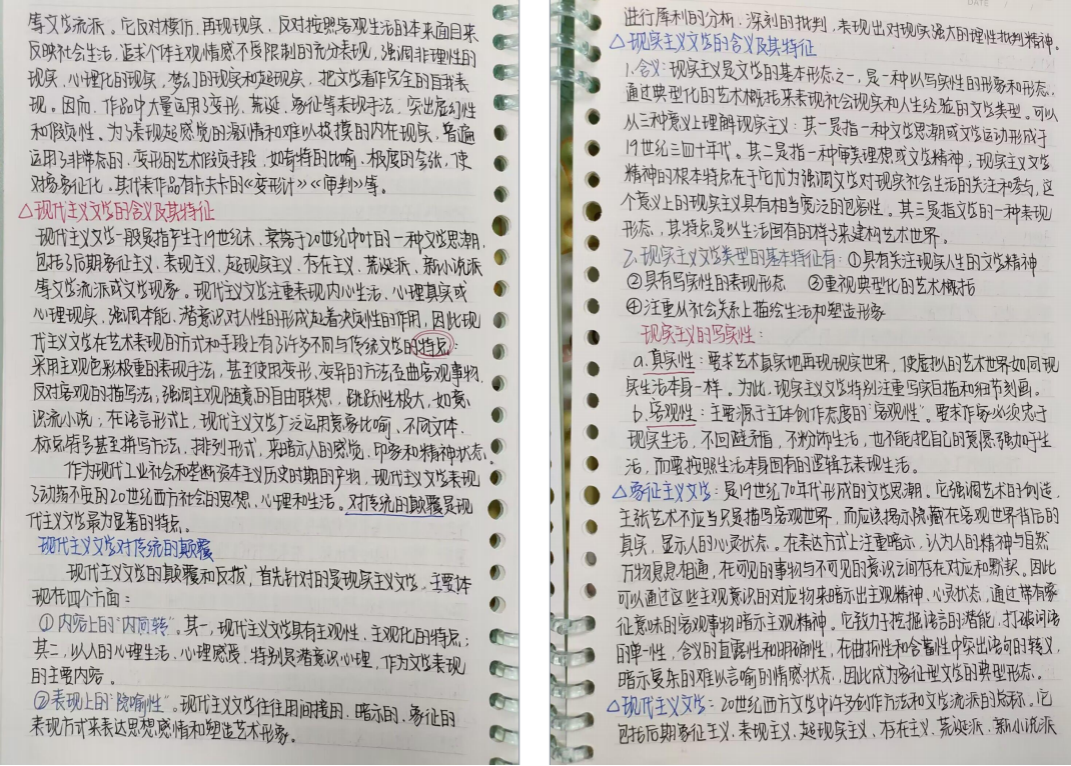 等文学流派。它反对模仿、再现现实，反对按照客观生活的本来面目来
反映社会生活，追求个体主观情感不受限制的充分表现，强调非理性的
现实、心理化的现实，梦幻的现实和超现实，把文学看作完全的自我表
现。因而，作品中大量运用了变形、荒诞、象征等表现手法，突出虚幻性
和假定性。为了表现超感觉的激情和难以捉摸的内在现实，普遍
运用了非常态的、变形的艺术假定手段，如奇特的比喻、极度的夸张，使
对象象征化。其代表作品有卡夫卡的《变形计》《审判》等。
△现代主义文学的含义及其特征
现代主义文学一般是指产生于19世纪末，繁荣于20世纪中叶的一种文学思潮，
包括了后期象征主义、表现主义、超现实主义、存在主义、荒诞派、新小说派
等文学流派或文学现象。现代主义文学注重表现内心生活、心理真实或
心理现实，强调本能、潜意识对人性的形成起着决定性的作用，因此现
代主义文学在艺术表现的方式和手段上有了许多不同与传统文学的特点：
采用主观色彩极重的表现手法，甚至使用变形、变异的方法歪曲客观事物，
反对客观的描写法，强调主观随意的自由联想，跳跃性极大，如意
识流小说；在语言形式上，现代主义文学广泛运用意象比喻、不同文体、
标点符号甚至拼写方法、排列形式，来暗示人的感觉、印象和精神状态。
作为现代工业社会和垄断资本主义历史时期的产物，现代主义文学表现
了动荡不安的20世纪西方社会的思想、心理和生活。对传统的颠覆是现
代主义文学最为显著的特点。
现代主义文学对传统的颠覆
现代主义文学的颠覆和反拨，首先针对的是现实主义文学，主要体
现在四个方面：
①内容上的“内向转”。其一，现代主义文学具有主观性、主观化的特点；
其二，以人的心理生活、心理感受，特别是潜意识心理，作为文学表现
的主要内容。
②表现上的“隐喻性”。现代主义文学往往用间接的、暗示的、象征的
表现方式来表达思想感情和塑造艺术形象。
进行犀利的分析、深刻的批判，表现出对现实强大的理性批判精神。
△现实主义文学的含义及其特征
1.含义：现实主义是文学的基本形态之一，是一种以写实性的形象和形态，
通过典型化的艺术概括来表现社会现实和人生经验的文学类型。可以
从三种意义上理解现实主义：其一是指一种文学思潮或文学运动形成于
19世纪三四十年代。其二是指一种审美理想或文学精神，现实主义文学
精神的根本特点在于它尤为强调文学对现实社会生活的关注和参与，这
个意义上的现实主义具有相当宽泛的包容性。其三是指文学的一种表现
形态，其特点是以生活固有的样子来建构艺术世界。
2.现实主义文学类型的基本特征有：①具有关注现实人生的文学精神
②具有写实性的表现形态 ③重视典型化的艺术概括
④注重从社会关系上描绘生活和塑造形象
现实主义的写实性：
a.真实性：要求艺术真实地再现现实世界，使虚拟的艺术世界如同现
实生活本身一样。为此，现实主义文学特别注重写实白描和细节刻画。
b.客观性：主要源于主体创作态度的“客观性”。要求作家必须忠于
现实生活，不回避矛盾，不粉饰生活，也不能把自己的意愿强加于生
活，而要按照生活本身固有的逻辑去表现生活。
△象征主义文学：是19世纪70年代形成的文学思潮。它强调艺术的创造，
主张艺术不应当只是描写客观世界，而应该揭示隐藏在客观世界背后的
真实，显示人的心灵状态。在表达方式上注重暗示，认为人的精神与自然
万物息息相通，在可见的事物与不可见的意识之间存在对应和默契。因此
可以通过这些主观意识的对应物来暗示出主观精神、心灵状态，通过带有象
征意味的客观事物暗示主观精神。它致力于挖掘语言的潜能，打破词语
的单一性，含义的直露性和明确性，在曲折性和含蓄性中突出语句的转义，
暗示复杂的难以言喻的情感状态，因此成为象征型文学的典型形态。
△现代主义文学：20世纪西方文学中许多创作方法和文学流派的总称。它
包括后期象征主义、表现主义、超现实主义、存在主义、荒诞派、新小说派